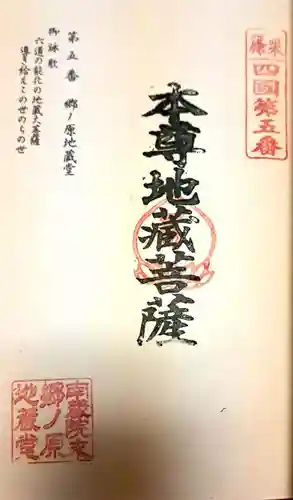 篠栗
四國第五番
本尊地藏菩薩
第五番 郷ノ原地蔵堂
御詠歌
六道の能化の地蔵大菩薩
導き給えこの世のちの世
南蔵院支
郷ノ原
地蔵堂